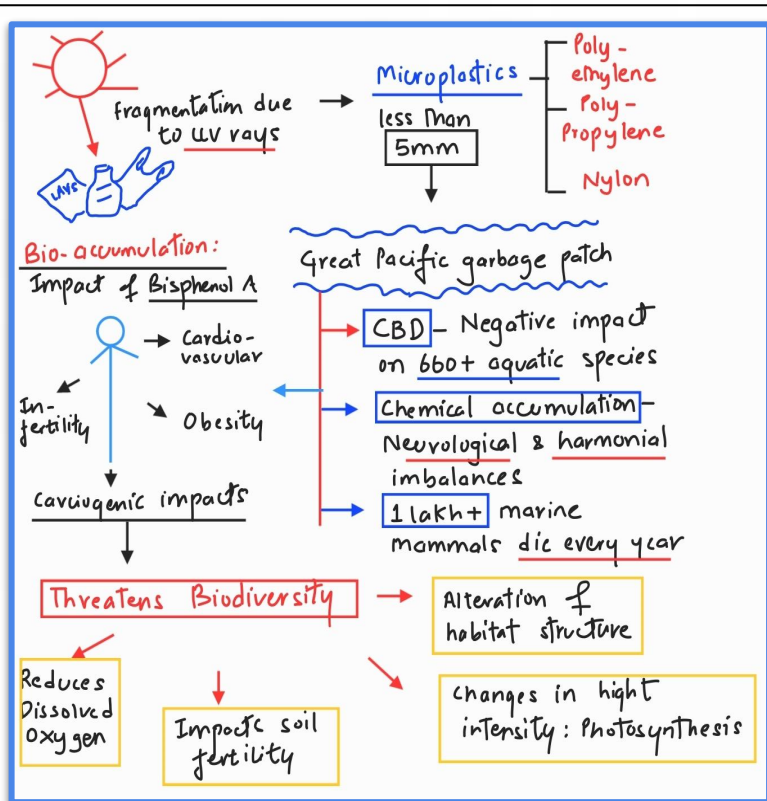 fragmentation due
to UV rays
Microplastics
less than
5mm
Poly-
ethylene
Poly-
Propylene
Nylon
LAYS
Bio-accumulation:
Impact of Bisphenol A
Cardio-
vascular
In-
fertility
Obesity
Carciogenic impacts
Great Pacific garbage patch
CBD - Negative impact
on 660+ aquatic species
Chemical accumulation -
Neurological & harmonial
imbalances
1 lakh+ marine
mammals die every year
Threatens Biodiversity
Alteration of
habitat structure
Reduces
Dissolved
Oxygen
Impacts soil
fertility
Changes in hight
intensity: Photosynthesis